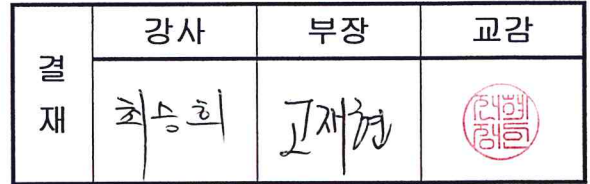 결재 강사 부장 교감
최승희 고재현